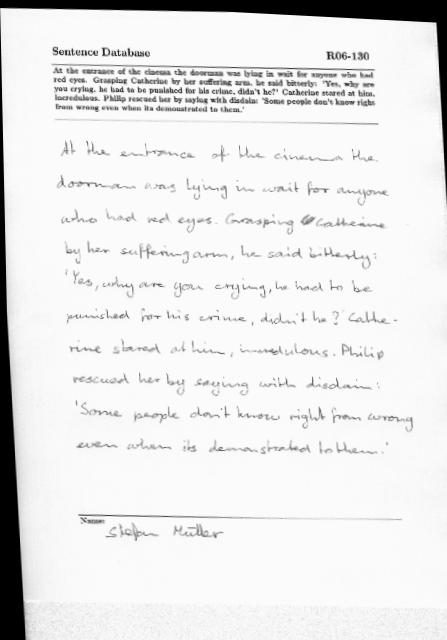 Sentence Database
R06-130
At the entrance of the cinema the doorman was lying in wait for anyone who had
red eyes. Grasping Catherine by her suffering arm, he said bitterly: 'Yes, why are
you crying, he had to be punished for his crime, didn't he?' Catherine stared at him,
incredulous. Philip rescued her by saying with disdain: 'Some people don't know right
from wrong even when its demonstrated to them.'
At the entrance of the cinema the
doorman was lying in wait for anyone
who had red eyes. Grasping Catherine
by her suffering arm, he said bitterly:
'Yes, why are you crying, he had to be
punished for his crime, didn't he?' Cathe-
rine stared at him, incredulous. Philip
rescued her by saying with disdain:
'Some people don't know right from wrong
even when its demonstrated to them.'
Name:
Stefan Müller